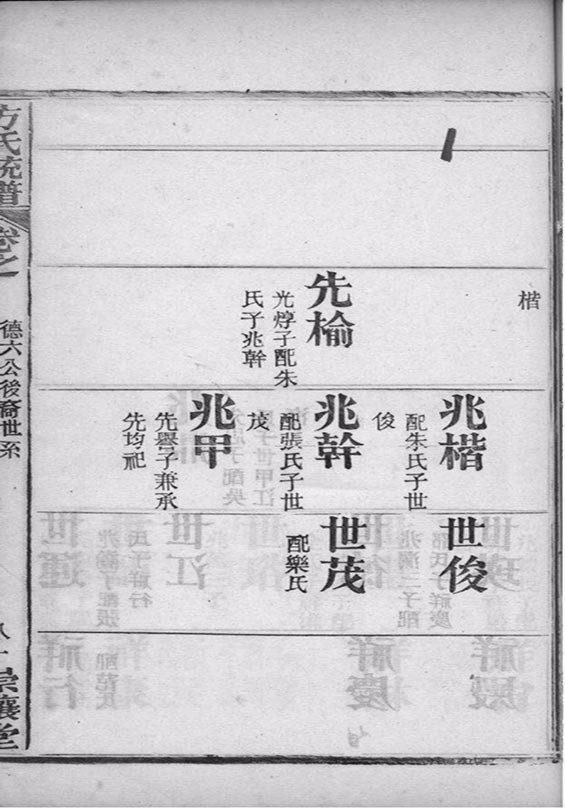 楷
先榆
光焞子配朱
氏子兆幹
兆楷
配朱氏子世
俊
兆幹
配張氏子世
茂
兆甲
先舉子兼承
先均祀
世俊
世茂
配樂氏
方氏統譜
卷之
德六公後裔世系